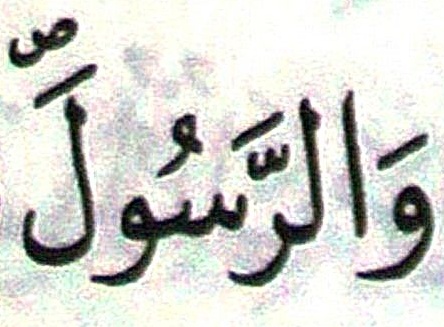 وَالرَّسُولَ ص